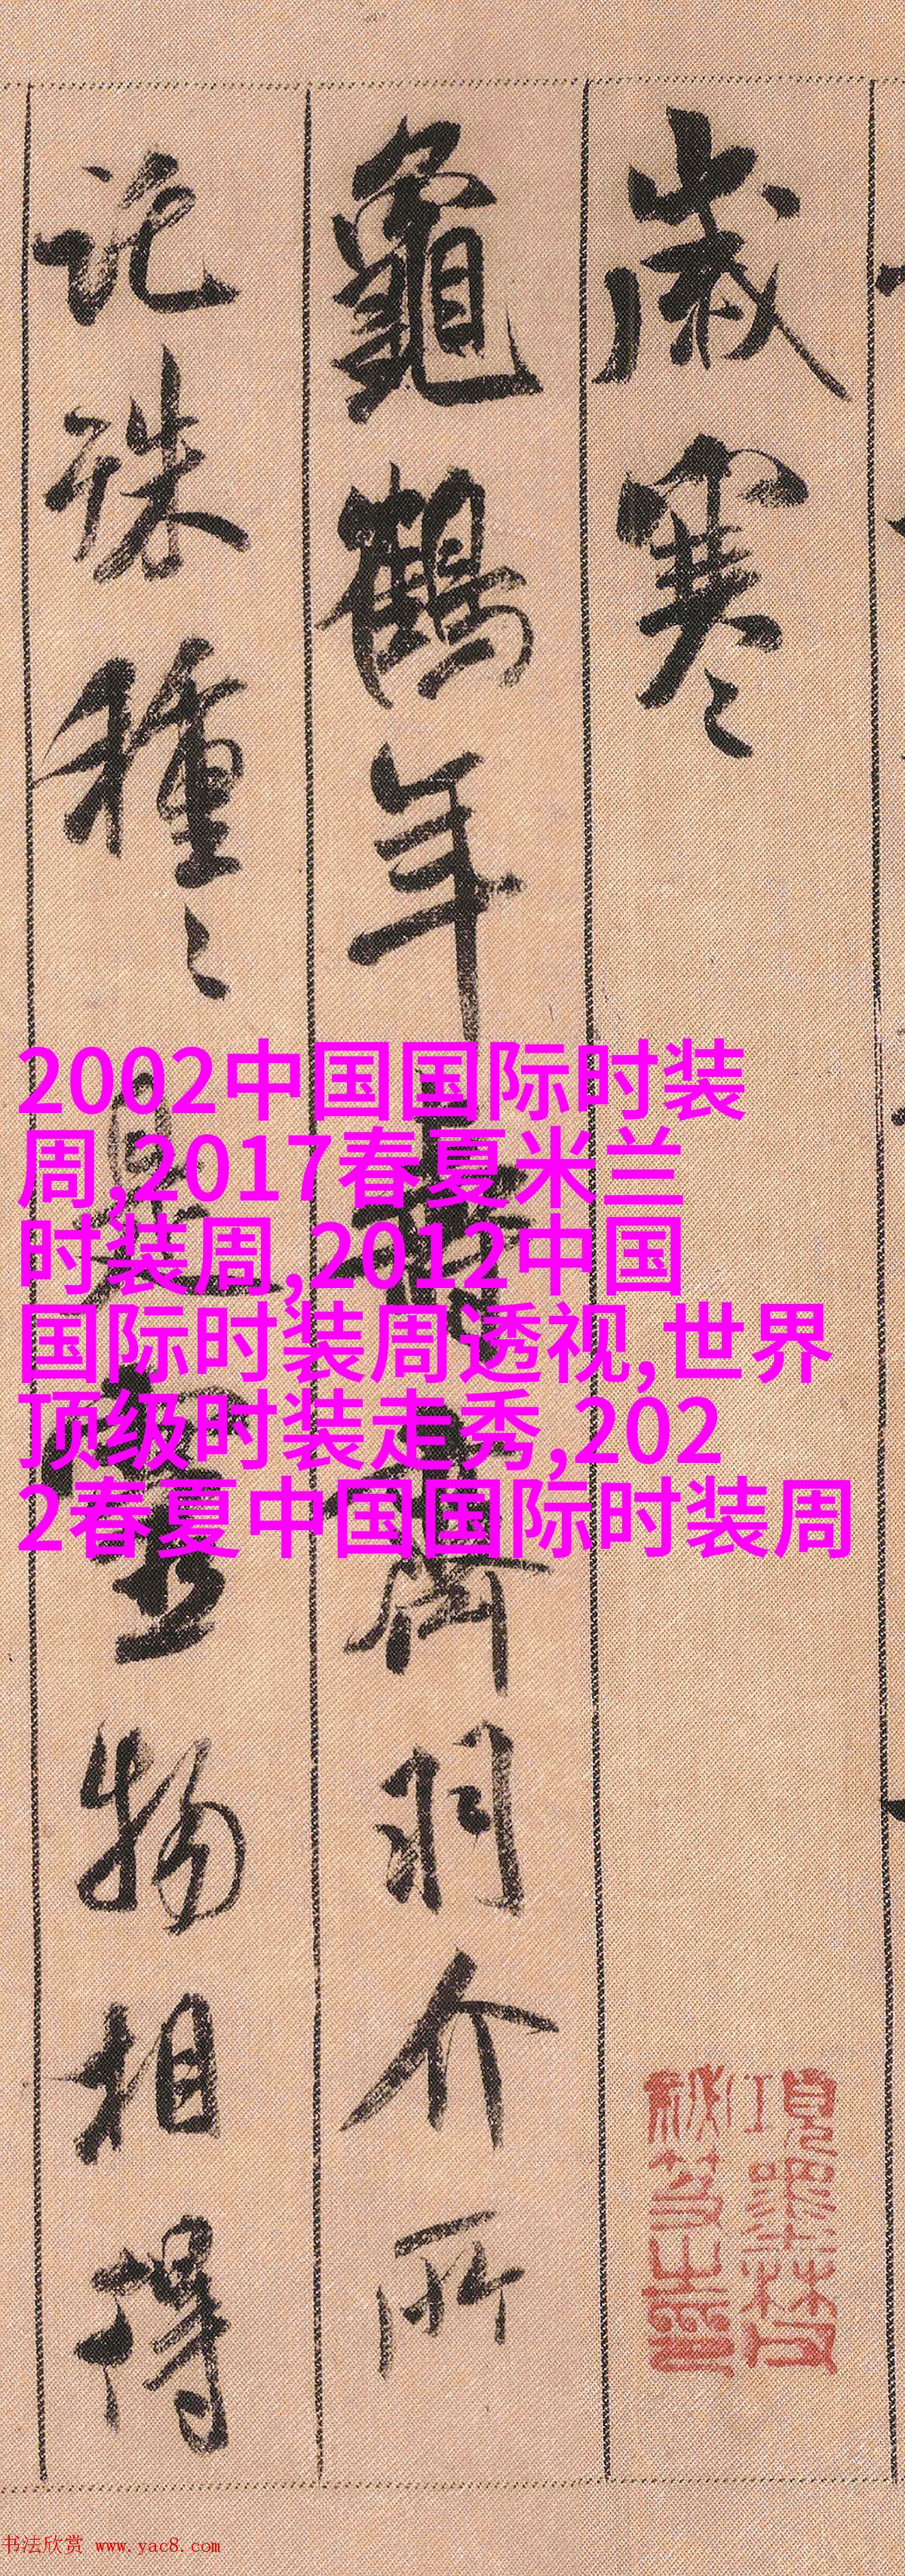 歲寒〻
龜鶴年壽齊羽介所
託殊種〻是靈物相得
2002中国国际时装
周,2017春夏米兰
时装周,2012中国
国际时装周透视,世界
顶级时装走秀,202
2春夏中国国际时装周
項墨林父
祕笈之印
书法欣赏 www.yac8.com